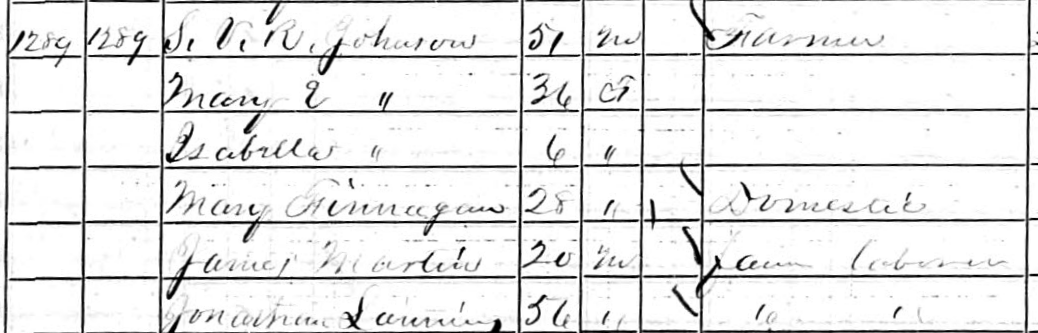 1289 1289 S. V. R. Johnson 51 M Farmer
Mary E " 36 F
Isabella " 6 "
Mary Finnagan 28 " 1 Domestic
James Martin 20 M farm laborer
Jonathan Lanning 56 " " "